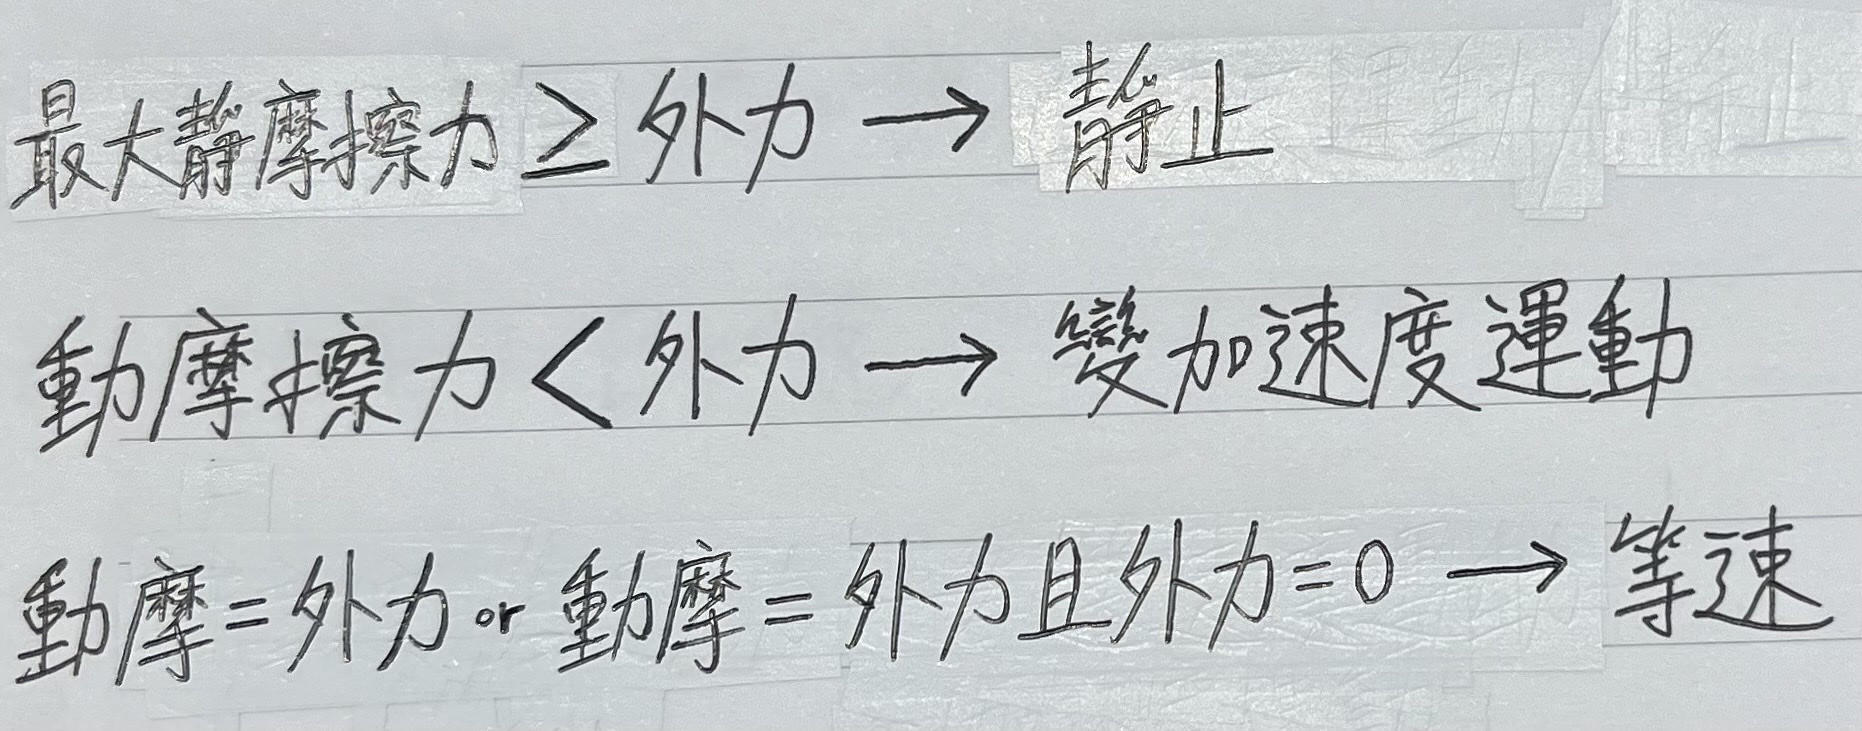 最大靜摩擦力 ≥ 外力 → 靜止
動摩擦力 < 外力 → 變加速度運動
動摩 = 外力 or 動摩 = 外力且外力 = 0 → 等速